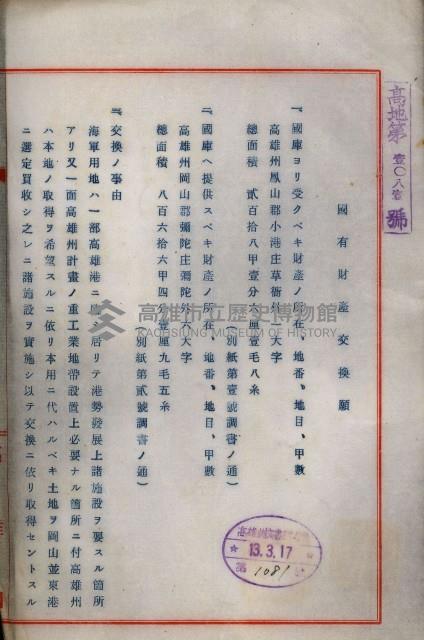 高地第壹〇八壹號
國有財產交換願
一、國庫ヨリ受クベキ財產ノ所在、地番、地目、甲數
高雄州鳳山郡小港庄草衙外一大字
總面積 貳百拾八甲壹分六厘壹毛八糸
(別紙第壹號調書ノ通)
二、國庫ヘ提供スベキ財產ノ所在、地番、地目、甲數
高雄州岡山郡彌陀庄彌陀外六大字
總面積 八百六拾六甲四分壹厘九毛五糸
(別紙第貳號調書ノ通)
三、交換ノ事由
海軍用地ハ一部高雄港ニ居リテ港勢發展上諸施設ヲ要スル箇所
アリ又一面高雄州計畫ノ重工業地帶設置上必要ナル箇所ニ付高雄州
ハ本地ノ取得ヲ希望スルニ依リ本用ニ代ハルベキ土地ヲ岡山並東港
ニ選定買收シ之レニ諸施設ヲ實施シ以テ交換ニ依リ取得セントスル
高雄州
13.3.17
第1081號
高雄市立歷史博物館
KAOHSIUNG MUSEUM OF HISTORY